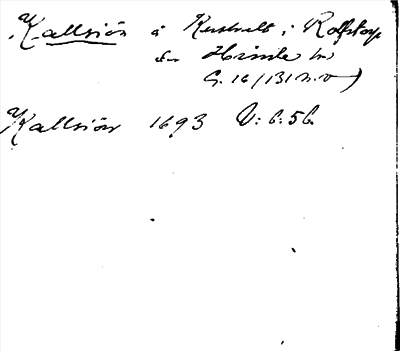 Kallsiön å Kushult i Rolfstorp
sn Himle hd
G. 16/131 n. v)
Kallsiön 1693 V: 6: 56.